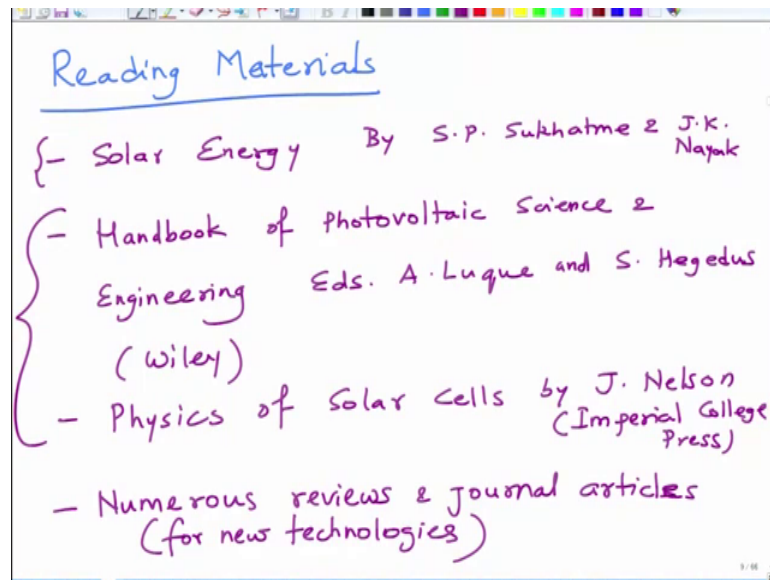 Reading Materials
- Solar Energy By S.P. Sukhatme & J.K. Nayak
- Handbook of Photovoltaic Science &
Engineering Eds. A. Luque and S. Hegedus
(Wiley)
- Physics of Solar Cells by J. Nelson
(Imperial College
Press)
- Numerous reviews & journal articles
(for new technologies)